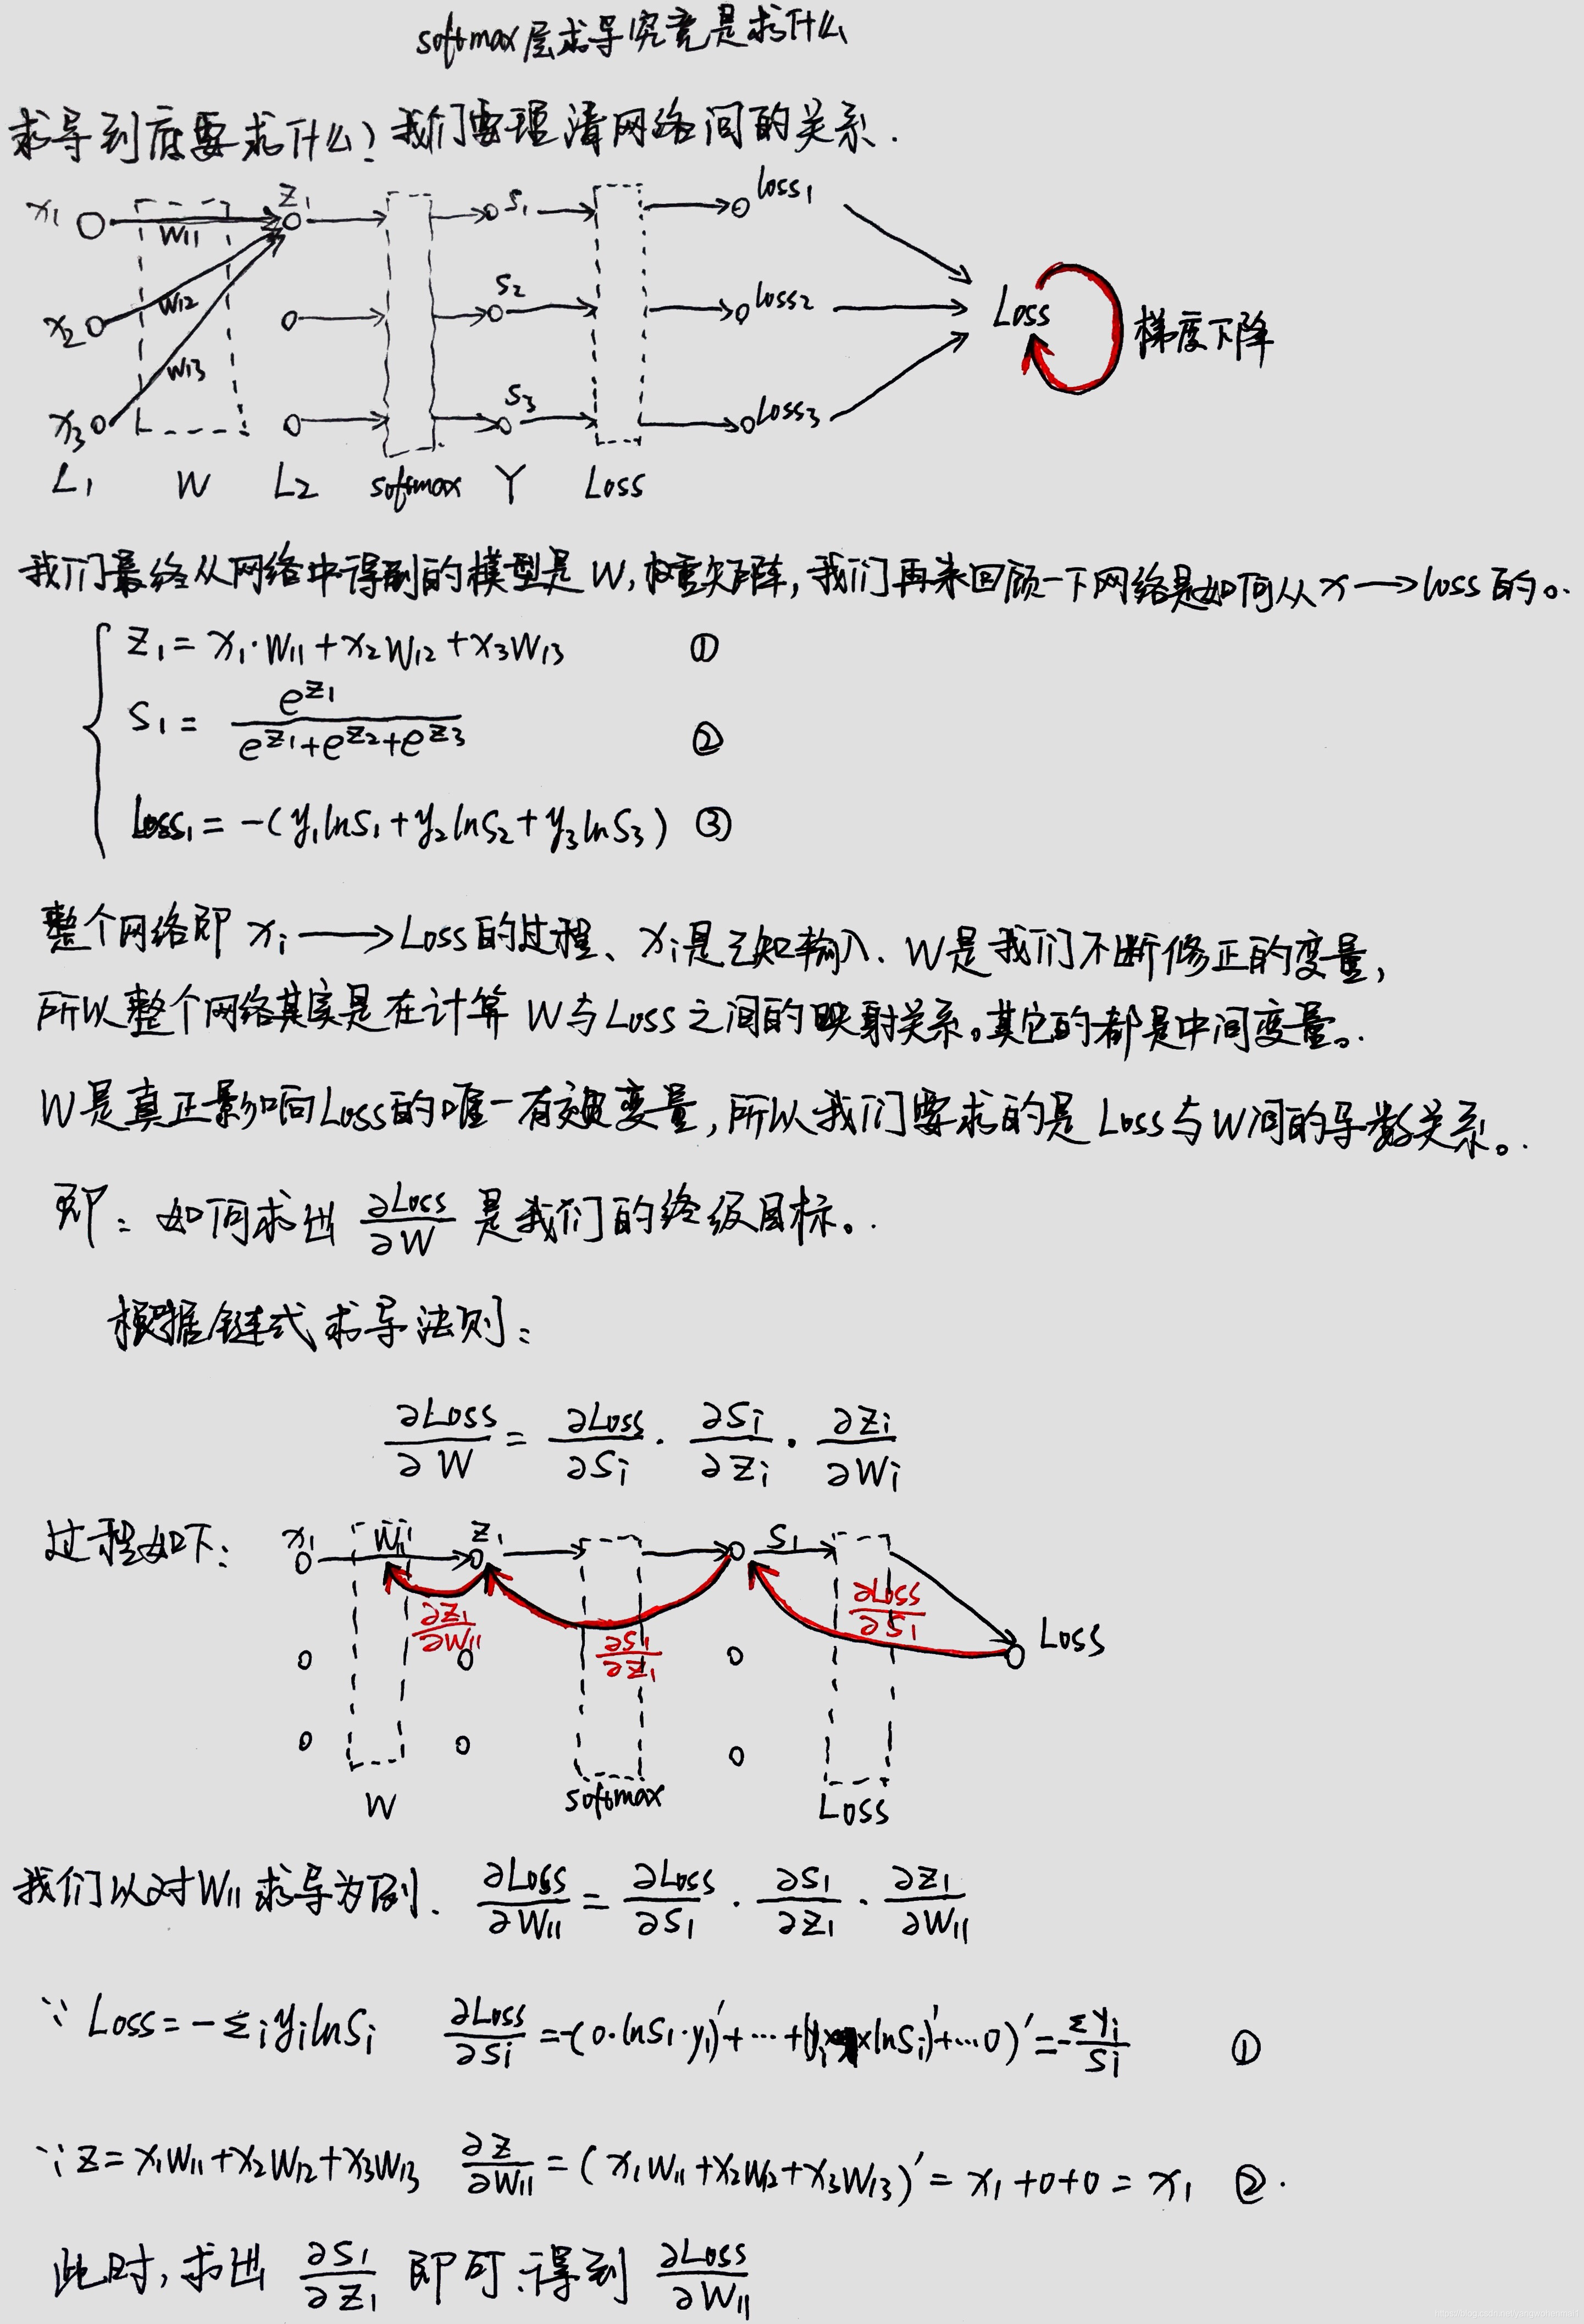 softmax层求导究竟是求什么
求导到底要求什么？我们要理清网络间的关系.
x₁ W₁₁ Z₁ S₁ loss₁
x₂ W₁₂ S₂ loss₂ Loss 梯度下降
x₃ W₁₃ S₃ Loss₃
L₁ W L₂ softmax Y Loss
我们最终从网络中得到的模型是W,权重矩阵,我们再来回顾一下网络是如何从x→loss的。
Z₁= x₁·W₁₁+x₂W₁₂+x₃W₁₃ ①
S₁= e^{Z₁}/(e^{Z₁}+e^{Z₂}+e^{Z₃}) ②
Loss₁= -(y₁lnS₁+y₂lnS₂+y₃lnS₃) ③
整个网络即 xᵢ→Loss的过程、xᵢ是已知输入. W是我们不断修正的变量,
所以整个网络其实是在计算 W与Loss之间的映射关系。其它的都是中间变量。
W是真正影响Loss的唯一有效变量,所以我们要求的是Loss与W间的导数关系。
即：如何求出 ∂Loss/∂W 是我们的终级目标。
根据链式求导法则：
∂Loss/∂W = ∂Loss/∂Sᵢ · ∂Sᵢ/∂Zᵢ · ∂Zᵢ/∂Wᵢ
过程如下： x₁ W₁₁ Z₁ S₁
∂Z₁/∂W₁₁ ∂S₁/∂Z₁ ∂Loss/∂S₁ Loss
W softmax Loss
我们以对W₁₁求导为例. ∂Loss/∂W₁₁ = ∂Loss/∂S₁ · ∂S₁/∂Z₁ · ∂Z₁/∂W₁₁
∵ Loss=-Σᵢyᵢlnsᵢ ∂Loss/∂Sᵢ =-(0·lnS₁·y₁)′+⋯+(yᵢ×(lnSᵢ)′+⋯0)′=-Σyᵢ/Sᵢ ①
∵ Z= x₁W₁₁+x₂W₁₂+x₃W₁₃ ∂Z/∂W₁₁ = (x₁W₁₁+x₂W₁₂+x₃W₁₃)′= x₁+0+0= x₁ ②.
此时,求出 ∂S₁/∂Z₁ 即可得到 ∂Loss/∂W₁₁